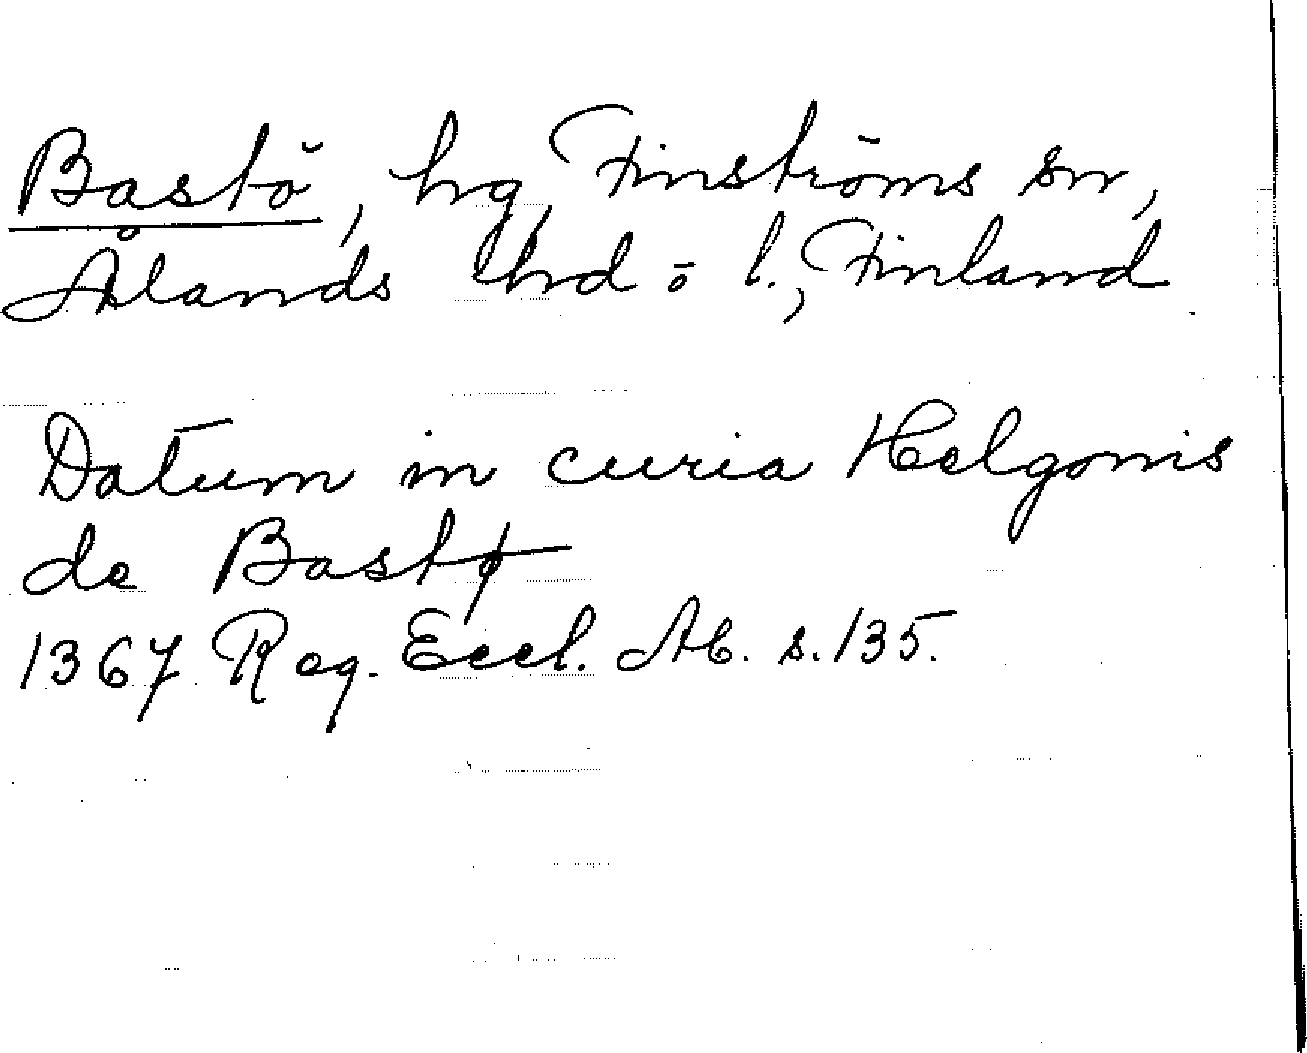 Bastö, hg, Finströms sn,
Ålands hd o l., Finland
Datum in curia Helgonis
de Bastø
1367 Reg. Eccl. Ab. s. 135.